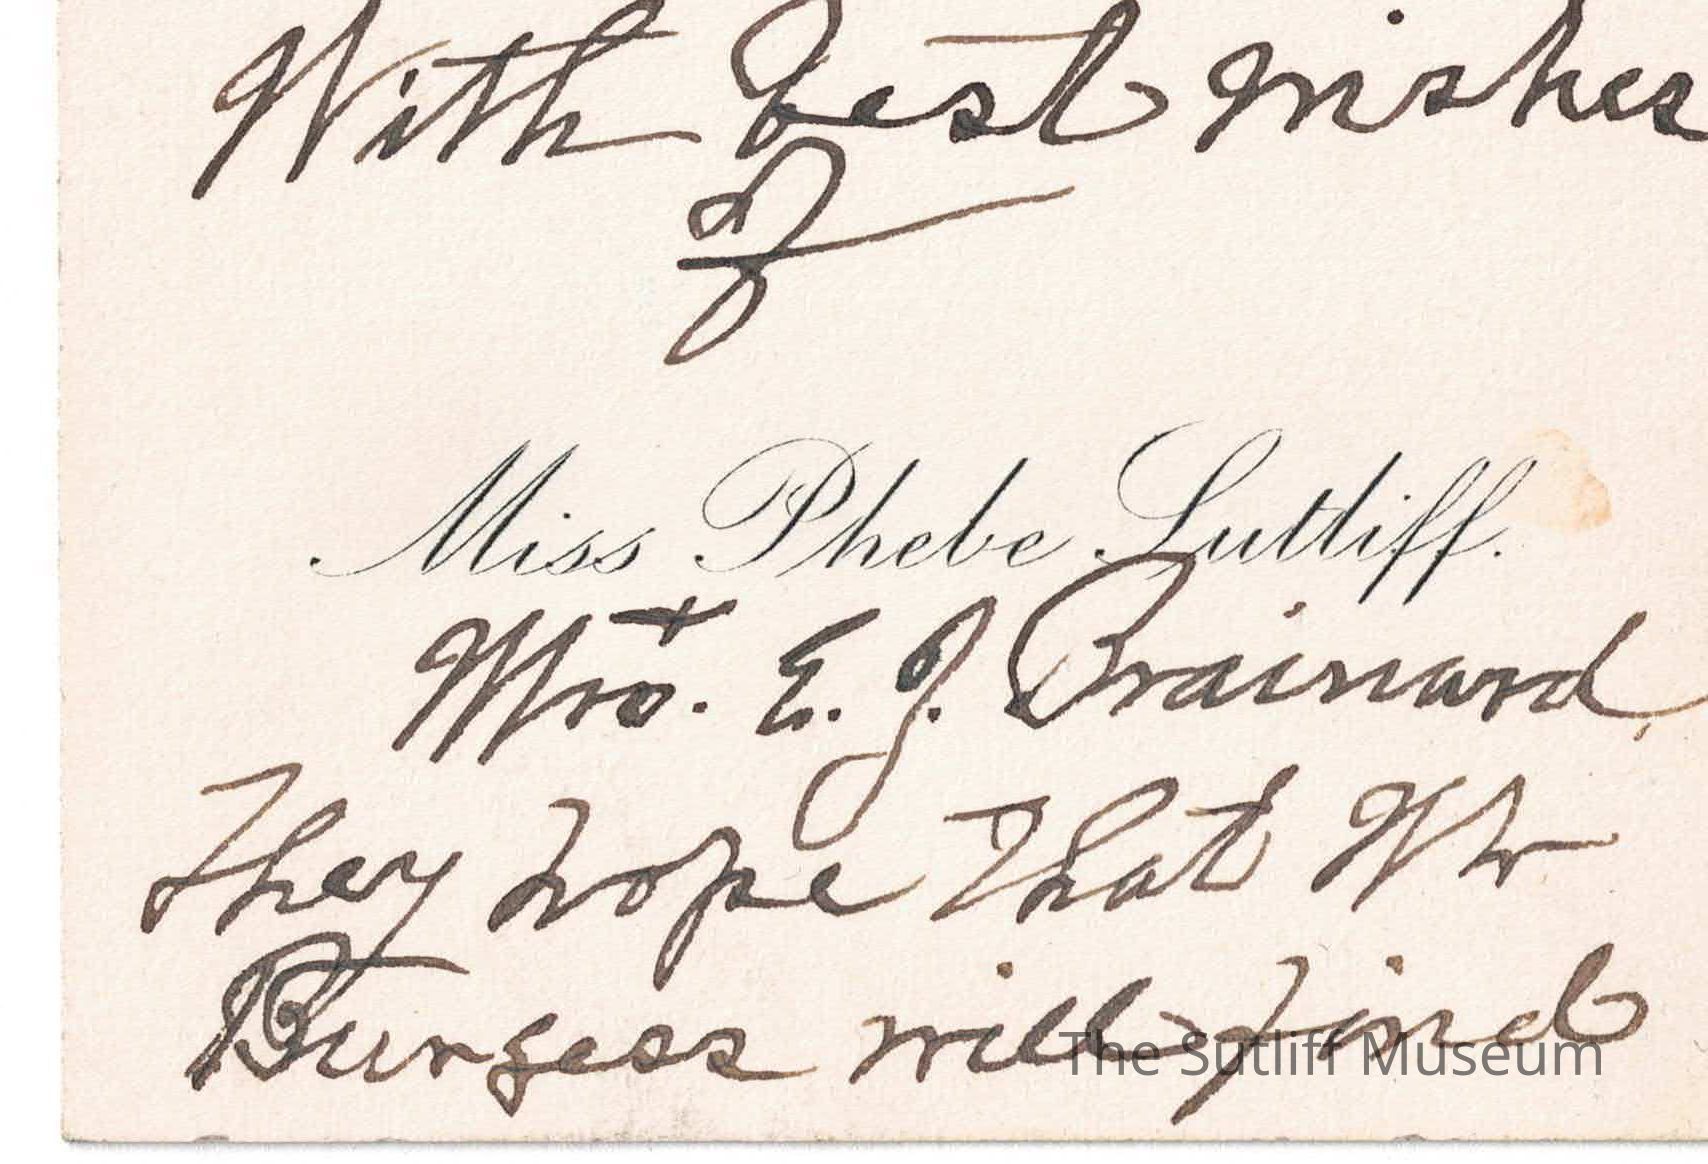 With best wishes
of
Miss Phebe Sutliff.
+
Mrs. E. J. Brainard
They hope that Mr
Burgess will find
The Sutliff Museum